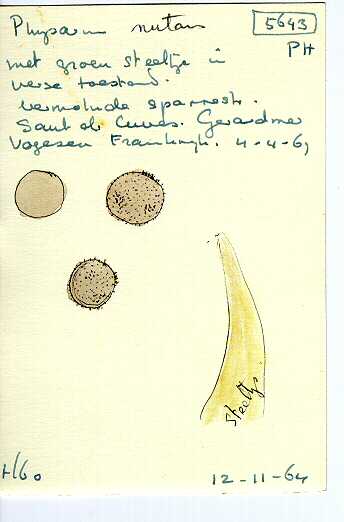 Physarum nutans
5643
PH
met groen steeltje in
verse toestand.
vermolmde sparrestr.
Saut des Cuves. Gerardmer
Vogezen Frankrijk. 4-4-61
steeltje
H/60
12-11-64